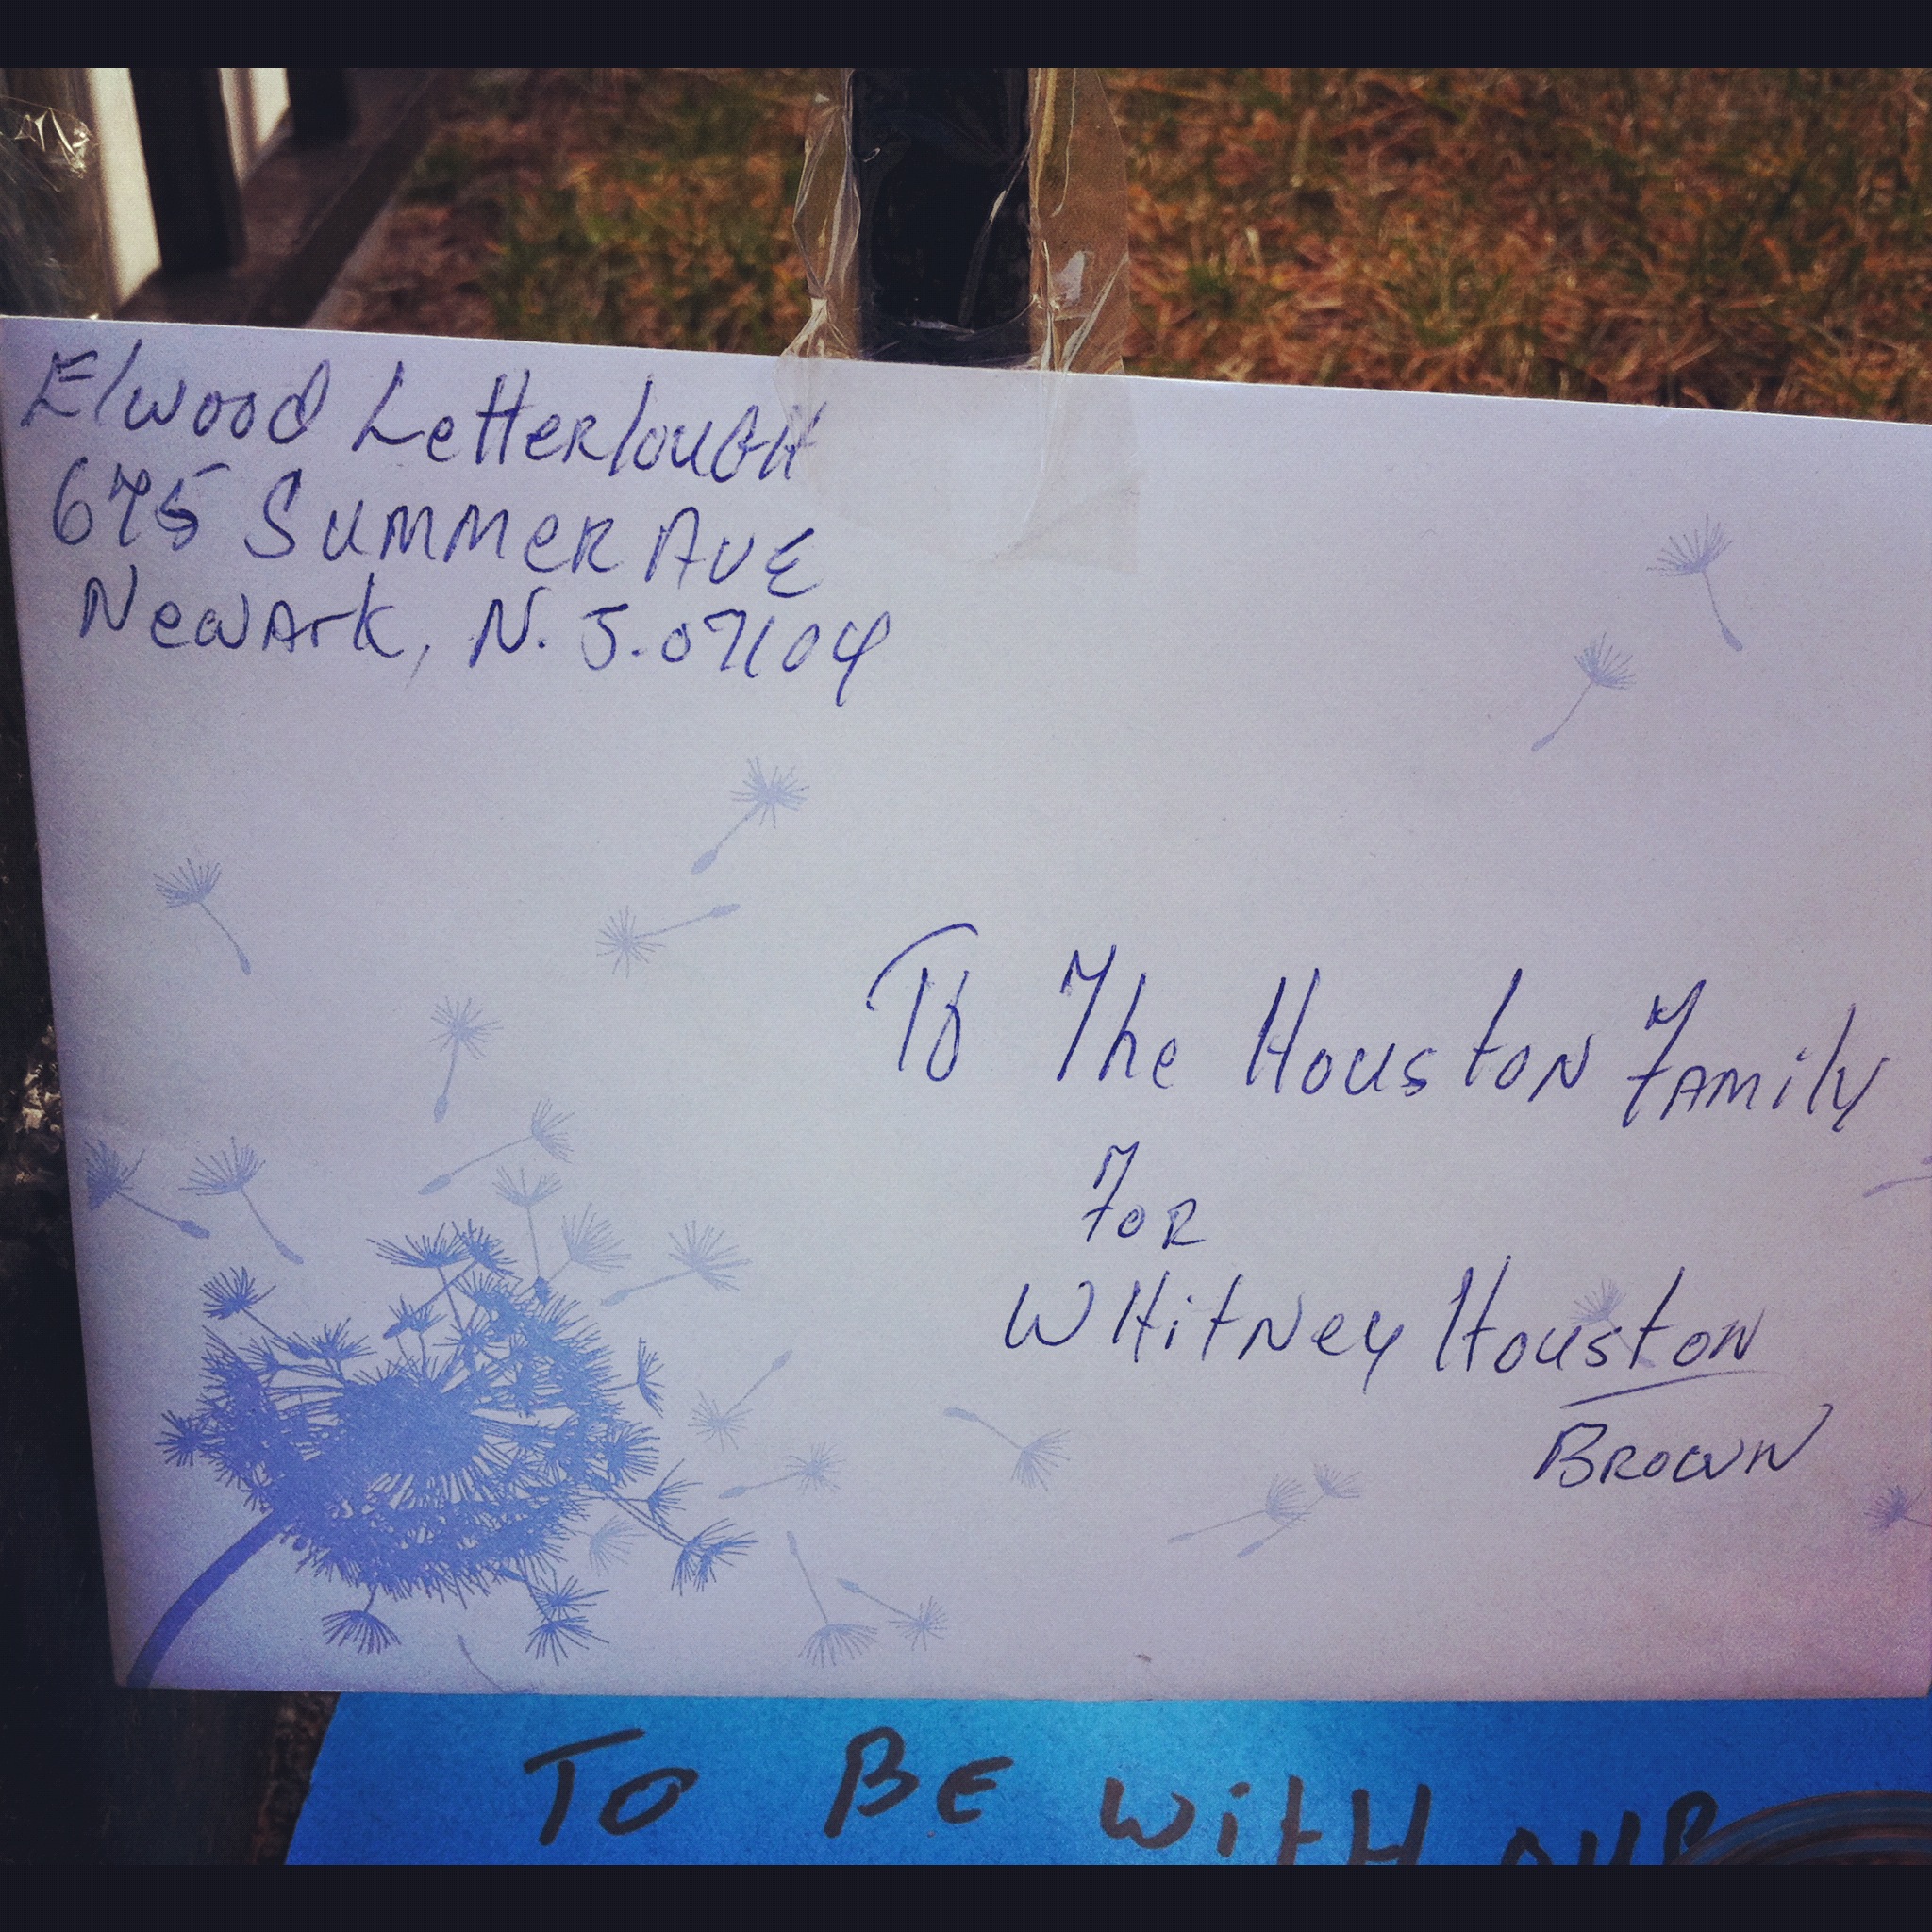 Elwood Letterlough
675 Summer Ave
Newark, N.J. 07104
To The Houston Family
For
WHitney Houston
Brown
TO BE WitH OUR